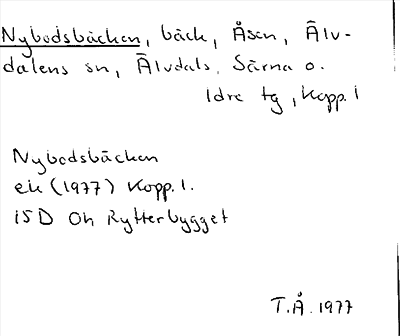 Nybodsbäcken, bäck, Åsen, Älv-
dalens sn, Älvdals, Särna o.
Idre tg, Kopp. l
Nybodsbäcken
ek (1977) Kopp. l.
15D Oh Rytterbygget
T.Å. 1977